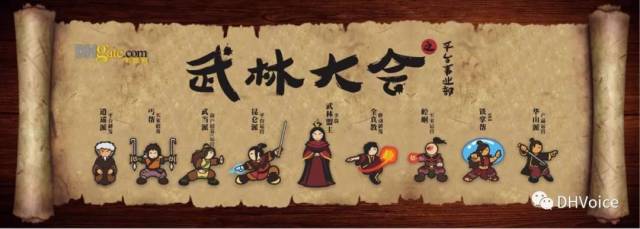 DHgate.com
武林大会
之
平台事业部
逍遥派
丐帮
武当派
昆仑派
武林盟主
全真教
崆峒
铁掌帮
华山派
DHVoice